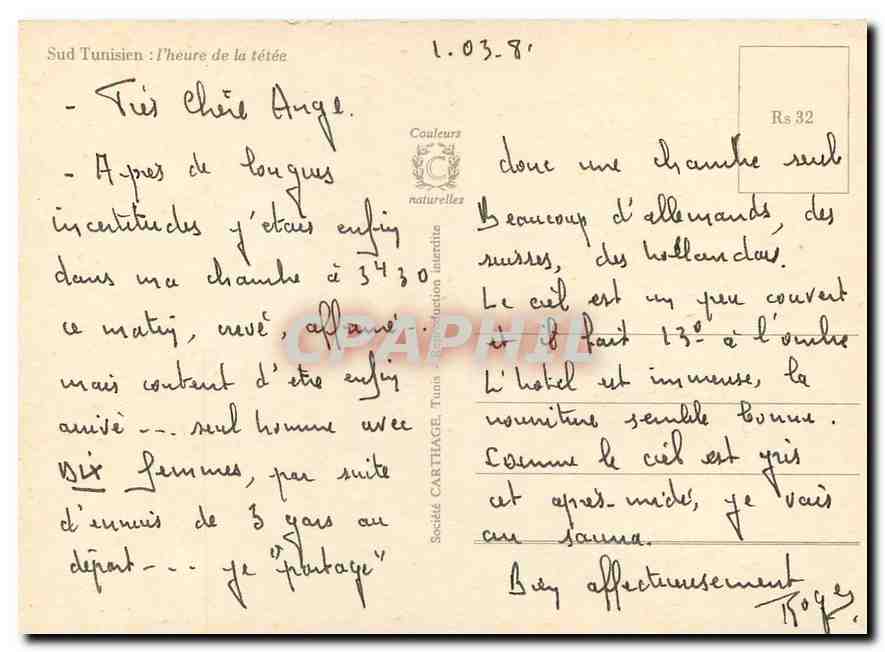 Sud Tunisien : l'heure de la tétée
1.03.8.
- Très Chère Ange.
- Après de longues
incertitudes j'étais enfin
dans ma chambre à 3H30
ce matin, crevé, affamé...
mais content d'être enfin
arrivé --- seul homme avec
DIX femmes, par suite
d'ennuis de 3 gars au
départ --- je "partage"
Couleurs
C
naturelles
Société CARTHAGE, Tunis - Reproduction interdite
Rs 32
donc une chambre seul
Beaucoup d'allemands, des
suisses, des hollandais.
Le ciel est un peu couvert
et il fait 13° à l'ombre
L'hôtel est immense, la
nourriture semble bonne.
Comme le ciel est gris
cet après-midi, je vais
au sauna.
Bien affectueusement
Roger
CPAPHIL